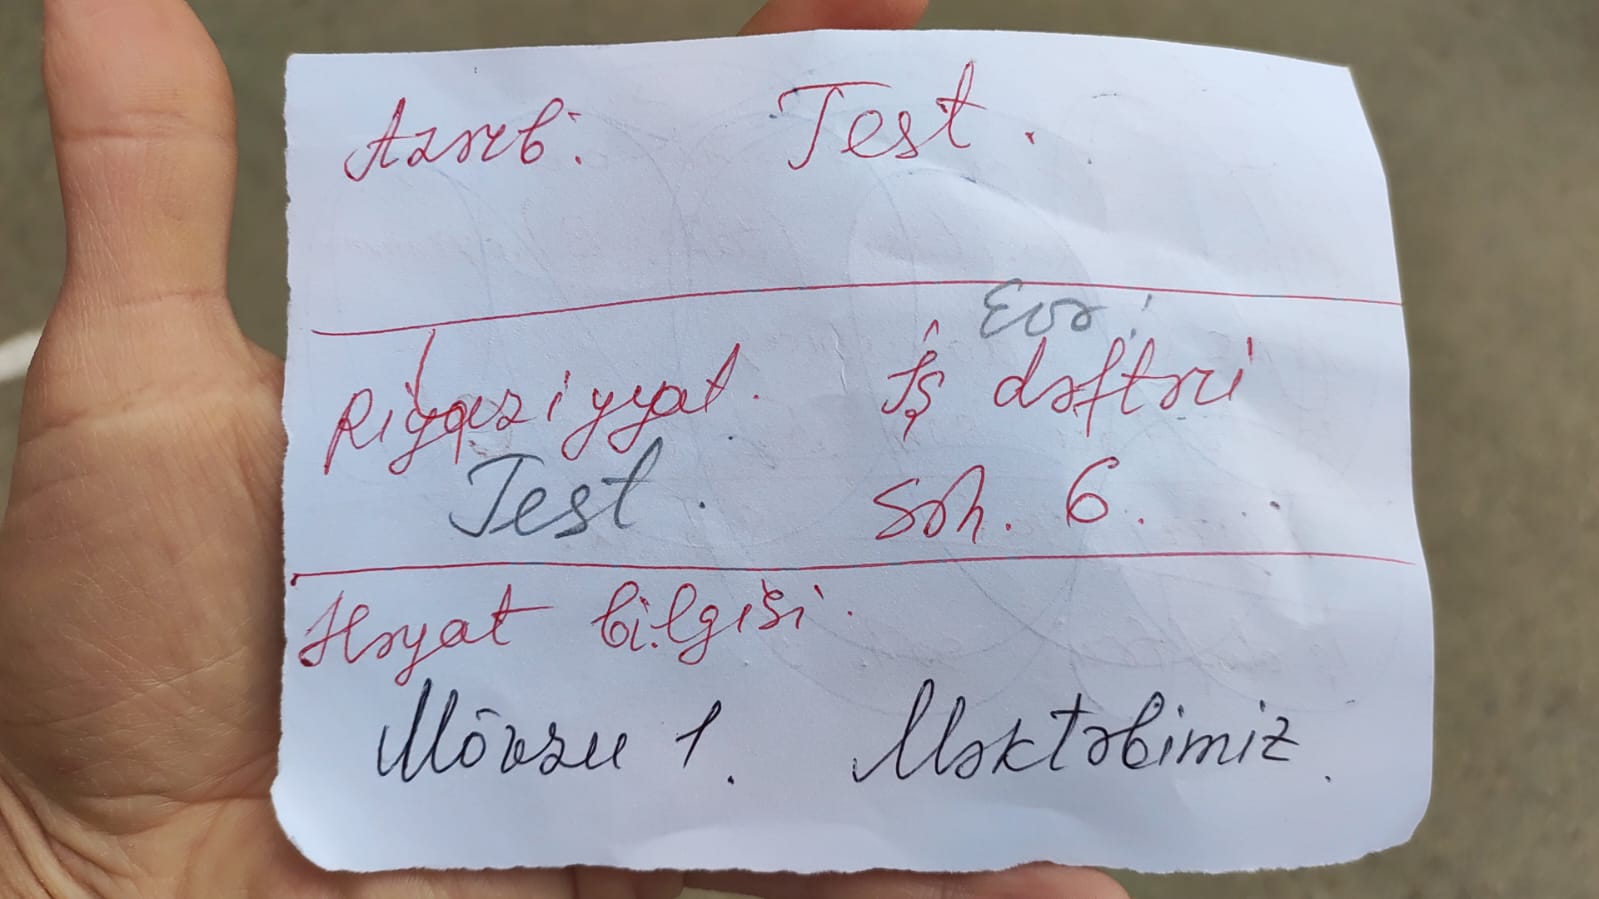 Azərb: Test.
Evə:
Riyaziyyat. İş dəftəri
Test. Səh. 6.
Həyat bilgisi.
Mövzu 1. Məktəbimiz.